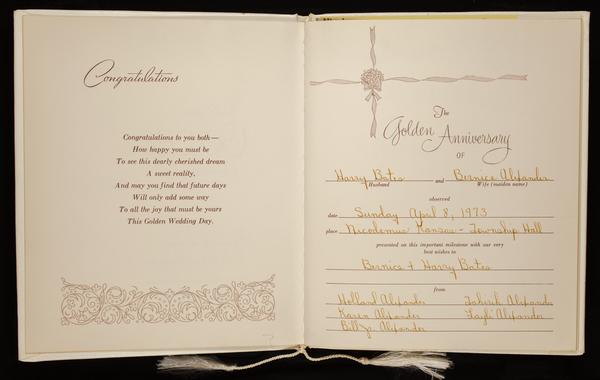 Congratulations
Congratulations to you both—
How happy you must be
To see this dearly cherished dream
A sweet reality,
And may you find that future days
Will only add some way
To all the joy that must be yours
This Golden Wedding Day.
The
Golden Anniversary
OF
Harry Bates and Bernice Alexander
Husband Wife (maiden name)
observed
date Sunday April 8, 1973
place Nicodemus Kansas - Township Hall
presented on this important milestone with our very
best wishes to
Bernice & Harry Bates
from
Holland Alexander Tahirih Alexander
Karen Alexander Layli Alexander
Bill Jr. Alexander